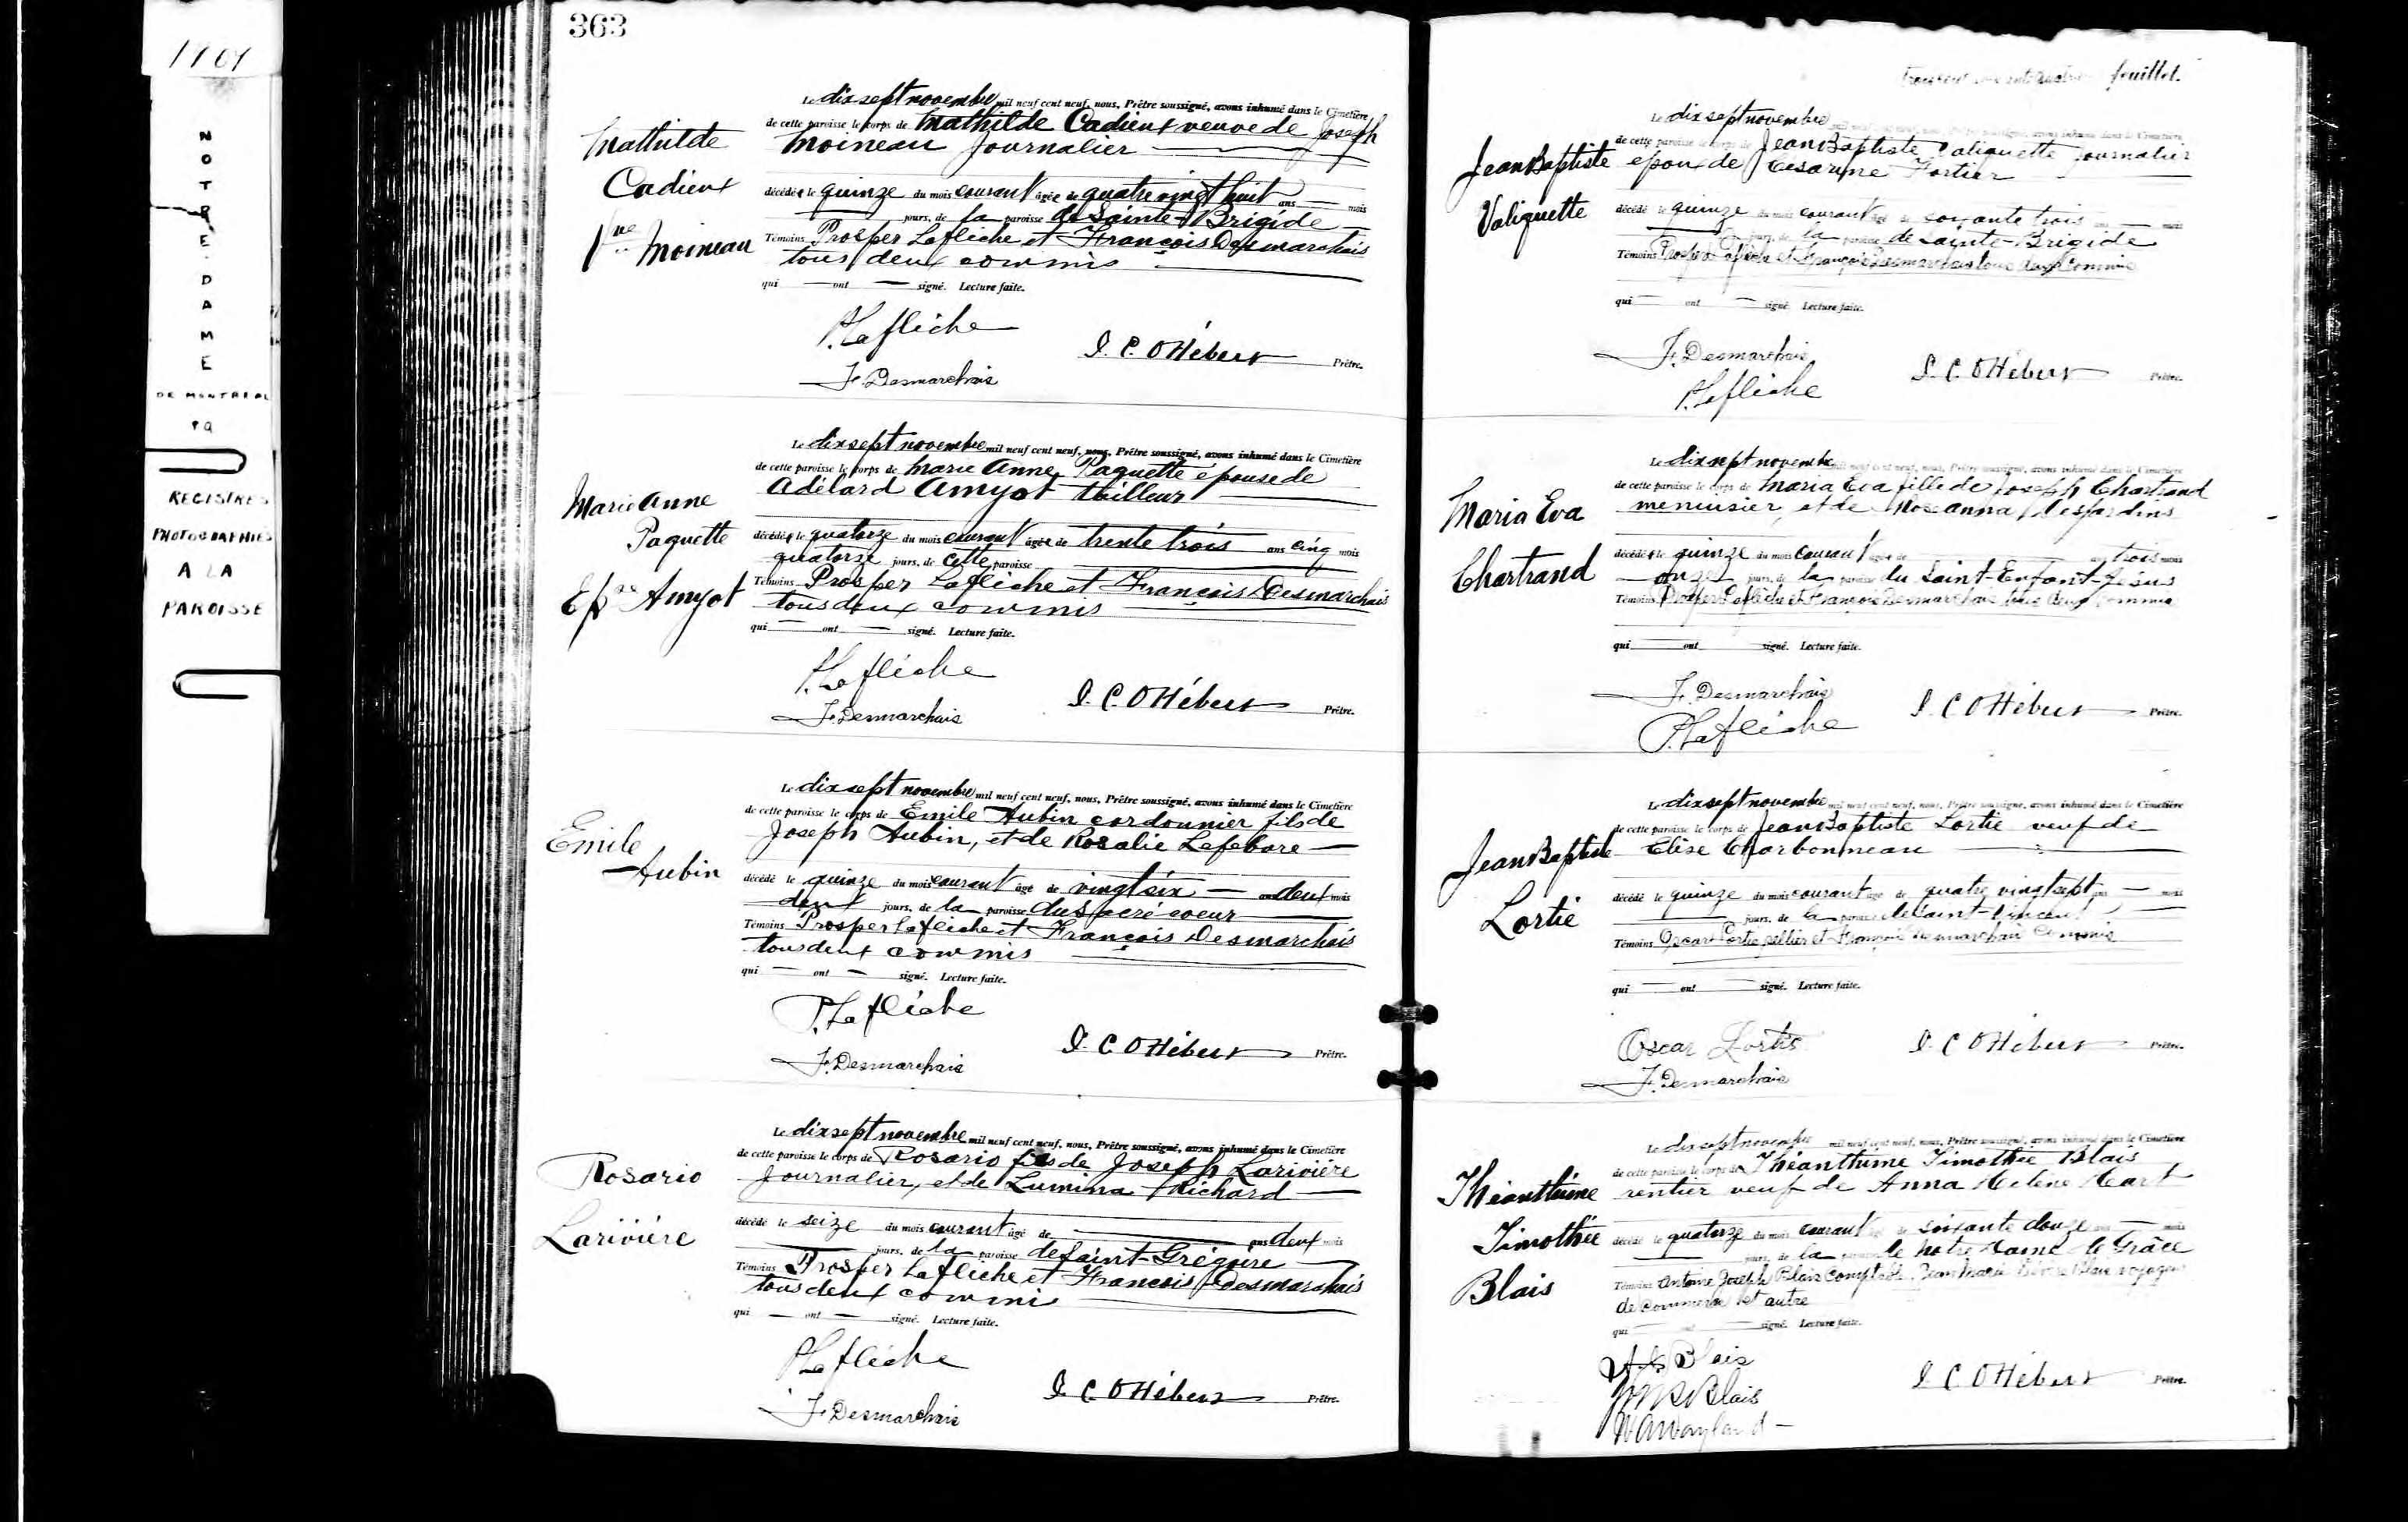 1909
NOTRE-DAME
DE MONTREAL
PQ
REGISTRES
PHOTOGRAPHIES
A LA
PAROISSE
363
Mathilde
Cadieux
Vve Moineau
Le dix sept novembre mil neuf cent neuf, nous, Prêtre soussigné, avons inhumé dans le Cimetière
de cette paroisse le corps de Mathilde Cadieux veuve de Joseph
Moineau journalier
décédée le quinze du mois courant âgée de quatre vingt huit ans mois
jours, de la paroisse de Sainte-Brigide
Témoins Prosper Laflèche et François Desmarchais
tous deux commis
qui ont signé. Lecture faite.
P. Laflèche
J. C. O Hébert Prêtre.
F. Desmarchais
Marie Anne
Paquette
Epse Amyot
Le dix sept novembre mil neuf cent neuf, nous, Prêtre soussigné, avons inhumé dans le Cimetière
de cette paroisse le corps de Marie Anne Paquette épouse de
Adélard Amyot tailleur
décédée le quatorze du mois courant âgée de trente trois ans cinq mois
quatorze jours, de cette paroisse
Témoins Prosper Laflèche et François Desmarchais
tous deux commis
qui ont signé. Lecture faite.
P. Laflèche
J. C. O Hébert Prêtre.
F. Desmarchais
Emile
Aubin
Le dix sept novembre mil neuf cent neuf, nous, Prêtre soussigné, avons inhumé dans le Cimetière
de cette paroisse le corps de Emile Aubin cordonnier fils de
Joseph Aubin, et de Rosalie Lefebvre
décédé le quinze du mois courant âgé de vingt six ans deux mois
deux jours, de la paroisse du Sacré coeur
Témoins Prosper Laflèche et François Desmarchais
tous deux commis
qui ont signé. Lecture faite.
P. Laflèche
J. C. O Hébert Prêtre.
F. Desmarchais
Rosario
Larivière
Le dix sept novembre mil neuf cent neuf, nous, Prêtre soussigné, avons inhumé dans le Cimetière
de cette paroisse le corps de Rosario fils de Joseph Larivière
Journalier, et de Lumina Richard
décédé le seize du mois courant âgé de ans deux mois
jours, de la paroisse de Saint-Grégoire
Témoins Prosper Laflèche et François Desmarchais
tous deux commi
qui ont signé. Lecture faite.
P. Laflèche
J. C. O Hébert Prêtre.
F. Desmarchais
feuillet.
Jean Baptiste
Valiquette
Le dix sept novembre mil neuf cent neuf, nous, Prêtre soussigné, avons inhumé dans le Cimetière
de cette paroisse le corps de Jean Baptiste Valiquette journalier
époux de Césarine Fortier
décédé le quinze du mois courant âgé de soixante trois ans mois
jours, de la paroisse de Sainte-Brigide
Témoins Prosper Laflèche et François Desmarchais tous deux commis
qui ont signé. Lecture faite.
F. Desmarchais
J. C. O Hébert Prêtre.
P. Laflèche
Maria Eva
Chartrand
Le dix sept novembre mil neuf cent neuf, nous, Prêtre soussigné, avons inhumé dans le Cimetière
de cette paroisse le corps de Maria Eva fille de Joseph Chartrand
menuisier, et de Roseanna Desjardins
décédée le quinze du mois courant âgée de ans trois mois
onze jours, de la paroisse du Saint-Enfant-Jésus
Témoins Prosper Laflèche et François Desmarchais tous deux commis
qui ont signé. Lecture faite.
F. Desmarchais
J. C. O Hébert Prêtre.
P. Laflèche
Jean Baptiste
Lortie
Le dix sept novembre mil neuf cent neuf, nous, Prêtre soussigné, avons inhumé dans le Cimetière
de cette paroisse le corps de Jean Baptiste Lortie veuf de
Elise Charbonneau
décédé le quinze du mois courant âgé de quatre vingt sept ans mois
jours, de la paroisse de Saint-Vincent
Témoins Oscar Lortie sellier et François Desmarchais commis
qui ont signé. Lecture faite.
Oscar Lortie
J. C. O Hébert Prêtre.
F. Desmarchais
Théanthime
Timothée
Blais
Le dix sept novembre mil neuf cent neuf, nous, Prêtre soussigné, avons inhumé dans le Cimetière
de cette paroisse le corps de Théanthime Timothée Blais
rentier veuf de Anna Helene Hart
décédé le quatorze du mois courant âgé de soixante douze ans mois
jours, de la paroisse de Notre Dame de Grâce
Témoins Antoine Joseph Blais comptable, Jean Marie Blais voyageur
de commerce et autre
qui ont signé. Lecture faite.
A. J. Blais
J. C. O Hébert Prêtre.
Blais
Wayland